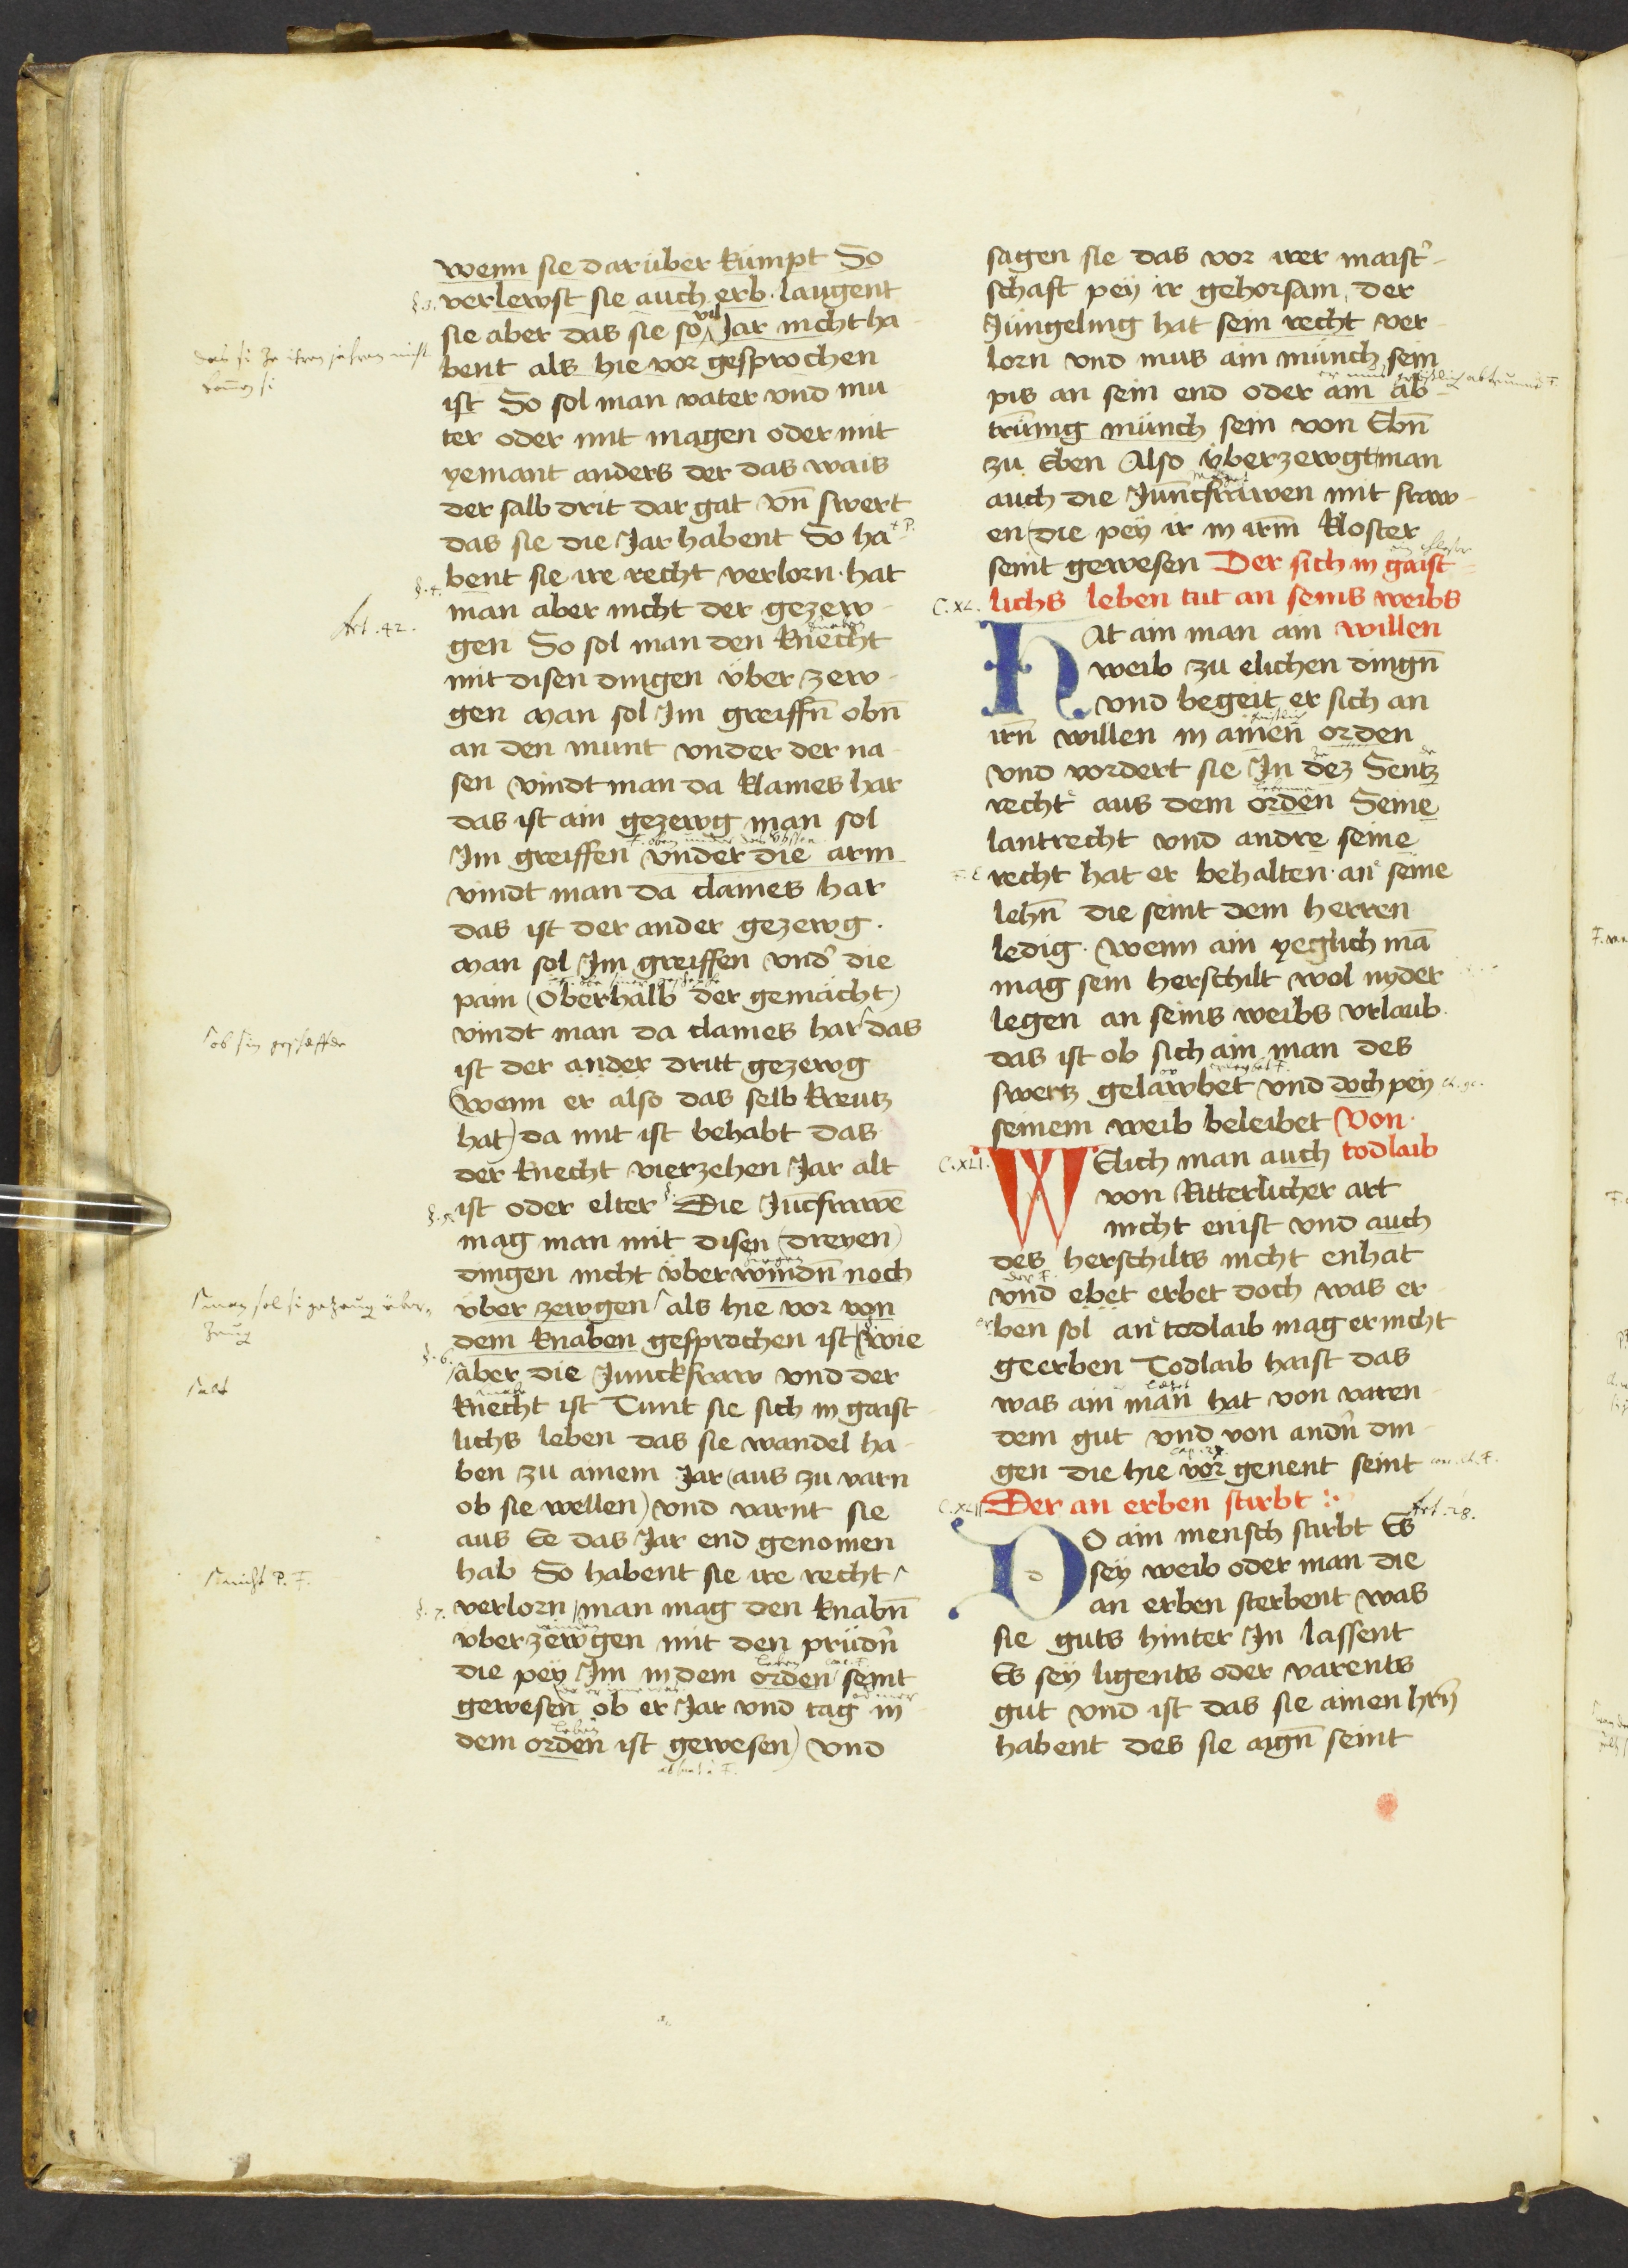 wenn sie darüber kümpt So
§.3. verlewst sie auch erb. laugent
sie aber das sie so vil Jar nicht ha-
bent als hie vor gesprochen
ist So sol man vater vnd mu
ter oder mit magen oder mit
yemant anders der das wais
der salb drit dar gat vn̄ swert
das sie die Jar habent So ha-
§.4. bent sie ire recht verlorn. hat
man aber nicht der gezew-
Art. 42.
gen So sol man den knecht
mit disen dingen über zew-
gen man sol Jm greiffn̄ obn̄
an den munt vnder der na
sen vindt man da klaines har
das ist ain gezewg man sol
Jm greiffen vnder die arm
vindt man da claines har
das ist der ander gezewg.
man sol Jm greiffen vnd' die
pain (Oberhalb der gemächt)
vindt man da claines har das
ist der ander dritt gezewg
(wenn er also das selb kreutz
hat) da mit ist behabt das
der knecht vierzehen Jar alt
§.5. ist oder elter Die Jūcfrawē
mag man mit disen (dreyen)
dingen nicht überwindn̄ noch
über zewgen als hie vor von
dem knaben gesprochen ist (wie
§.6. aber die Junckfraw vnd der
knecht ist Tunt sie sich in gaist-
lichs leben das sie wandel ha-
ben zu ainem Jar (aus zu varn
ob sie wellen) vnd varnt sie
aus Ee das Jar end genomen
hab So habent sie ire recht
§.7. verlorn man mag den knabn̄
vberzewgen mit den prüdn̄
die pey Jm in dem orden seint
gewesen ob er Jar vnd tag in
dem orden ist gewesen) vnd
sagen sie das vor irer maist'-
schaft pey ir gehorsam, der
Jüngeling hat sein recht ver-
lorn vnd mus ain münch sein
pis an sein end oder ain ab-
trünig münch sein von Ebn̄
zu Eben Also überzewgt man
auch die Junckfrawen mit fraw-
en (die pey ir in irm̄ kloster
seint gewesen Der sich in gaist-
C.XL. lichs leben tut an seins weibs
HAt ain man ain willen
weib zu elichen dingn̄
vnd begeit er sich an
irn̄ willen in ainen orden
vnd vordert sie Jn dez Sentz
recht aus dem orden Seine
lantrecht vnd andre seine
recht hat er behalten. an seine
lehn̄ die seint dem herren
ledig. wenn ain yeglich mā
mag sein herschilt wol nyder
legen an seins weibs vrlaub.
das ist ob sich ain man des
swertz gelawbet vnd doch pey
seinem weib beleibet Von.
C.XLI. WElich man auch todlaib
von Ritterlicher art
nicht enist vnd auch
des herschilts nicht enhat
vnd ebet erbet doch was er
erben sol an todlaib mag er nicht
geerben Todlaib haist das
was ain man hat von varen-
dem gut vnd von andn̄ din-
gen die hie vor genent seint
C.XLII. Der an erben stirbt :.
Art. 28.
DO ain mensch stirbt Es
sey weib oder man die
an erben sterbent was
sie guts hinter Jn lassent
Es sey ligents oder varents
gut vnd ist das sie ainen hrn̄
habent des sie aign̄ seint